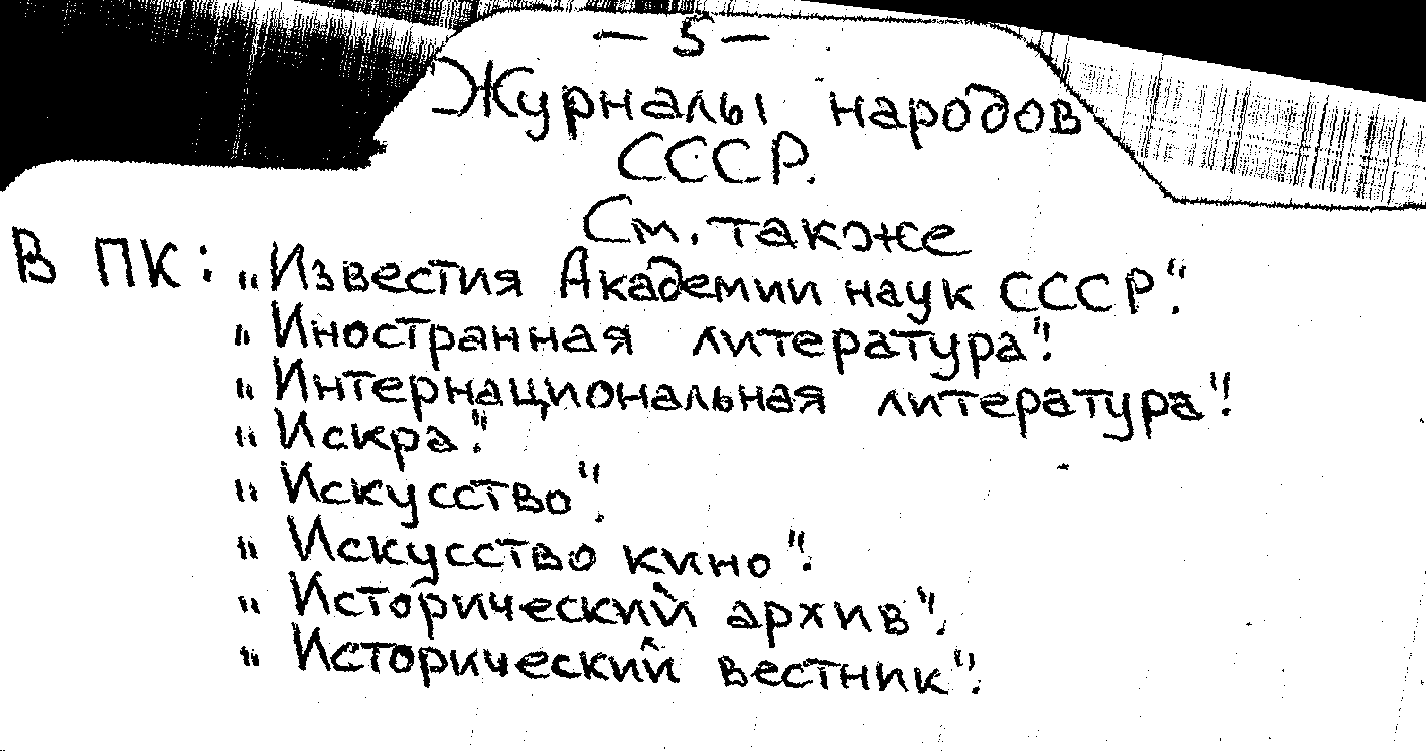 — 5 —
Журналы народов
СССР.
См. также
В ПК: „Известия Академии наук СССР“.
„Иностранная литература“.
„Интернациональная литература“.
„Искра“.
„Искусство“.
„Искусство кино“.
„Исторический архив“.
„Исторический вестник“.